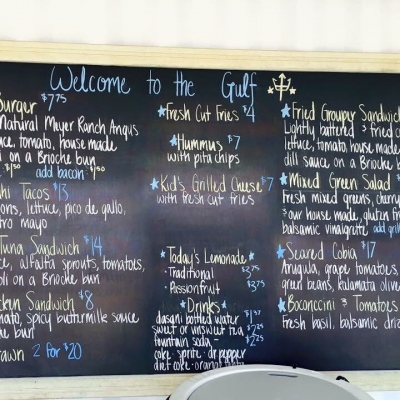 Welcome to the Gulf
Burger $7.75
Natural Meyer Ranch Angus
lettuce, tomato, house made
on a Brioche bun
add bacon $1.50
Tacos $13
lettuce, pico de gallo,
mayo
Tuna Sandwich $14
alfalfa sprouts, tomatoes,
on a Brioche bun
Sandwich $8
spicy buttermilk sauce
bun
2 for $20
Fresh Cut Fries $4
Hummus $7
with pita chips
Kid's Grilled Cheese $7
with fresh cut fries
Today's Lemonade
· Traditional $3.75
· Passionfruit $3.75
Drinks
dasani bottled water
sweet or unsweet tea $2.25
fountain soda - $2.25
coke · sprite · dr. pepper
diet coke · orange
Fried Grouper Sandwich
Lightly battered & fried
lettuce, tomato, house made
dill sauce on a Brioche
Mixed Green Salad
Fresh mixed greens,
& our house made, gluten
balsamic vinaigrette add
Seared Cobia $17
Arugula, grape tomatoes,
green beans, kalamata
Bocconcini & Tomatoes
Fresh basil, balsamic